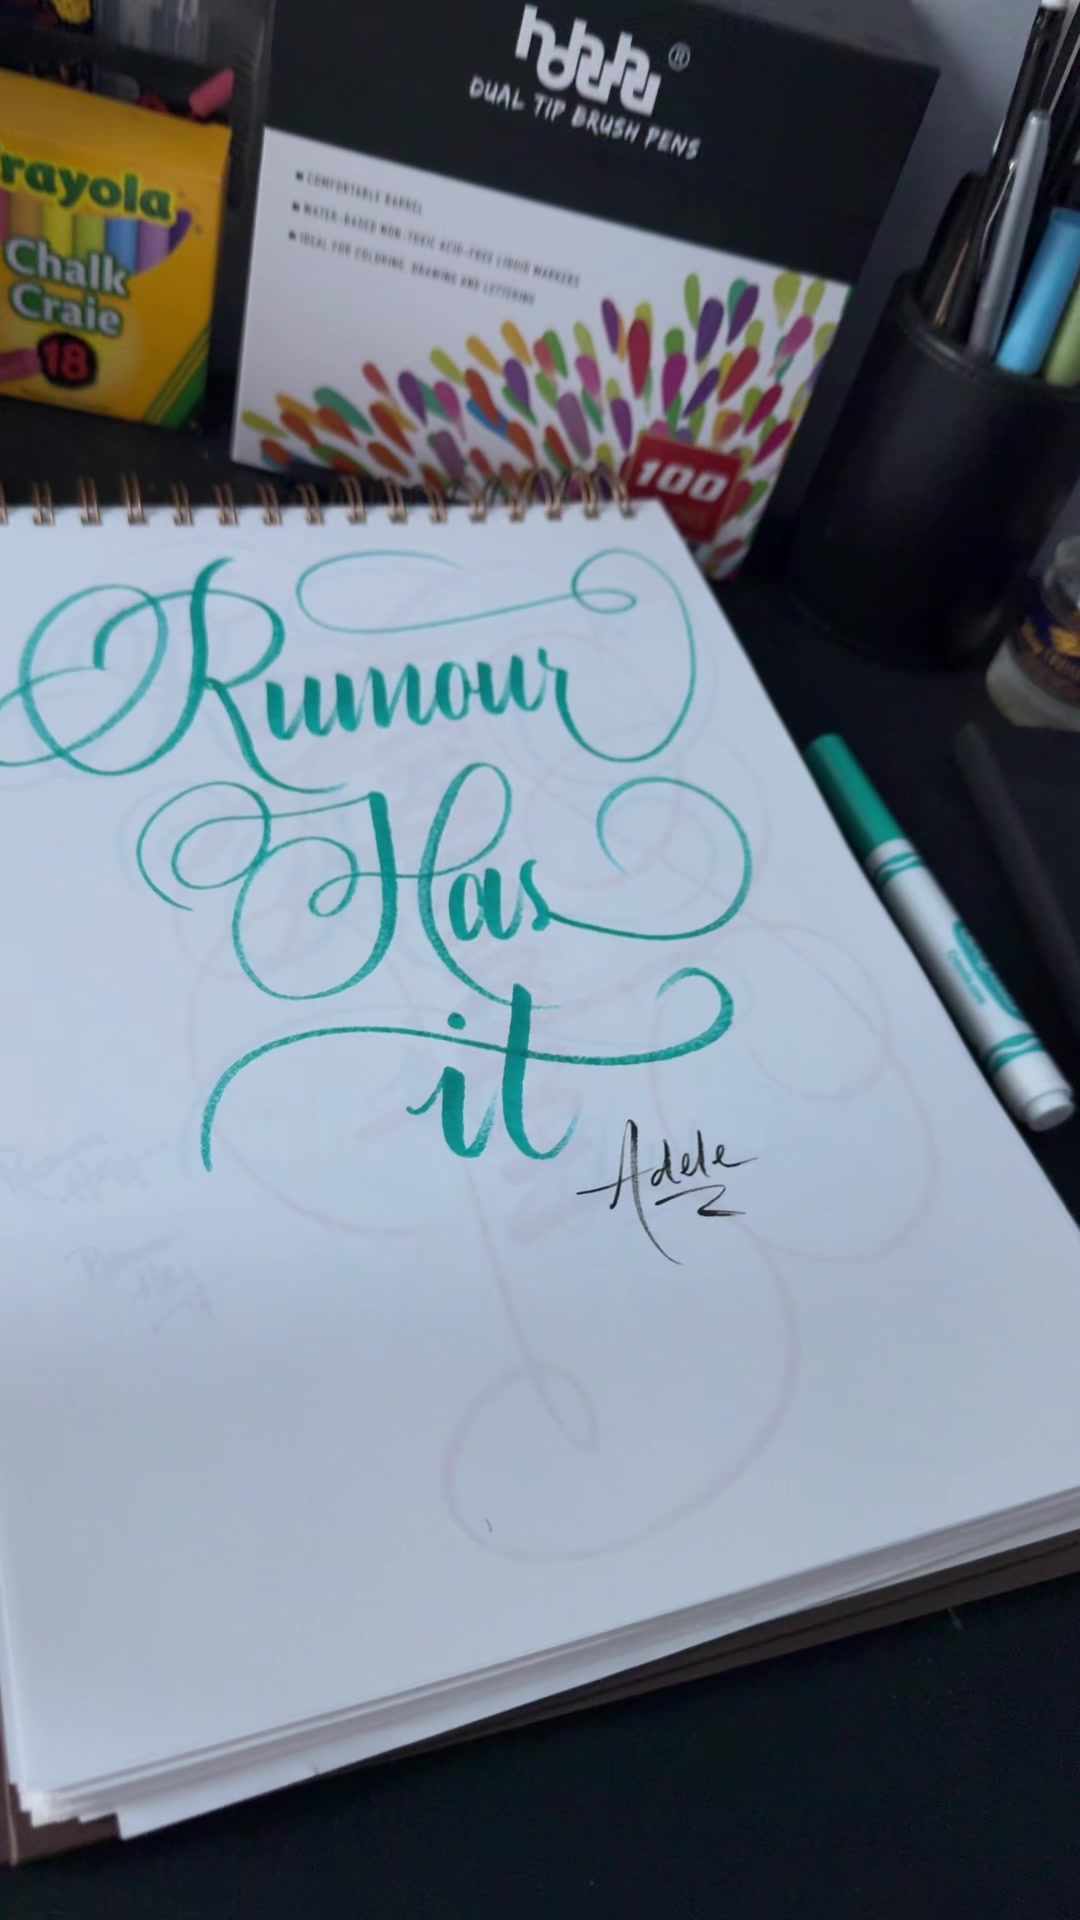 hhhh®
DUAL TIP BRUSH PENS
COMFORTABLE BARREL
WATER-BASED NON-TOXIC ACID-FREE LIQUID MARKERS
IDEAL FOR COLORING, DRAWING AND LETTERING
100
rayola
Chalk
Craie
18
Rumour
Has
it
Adele